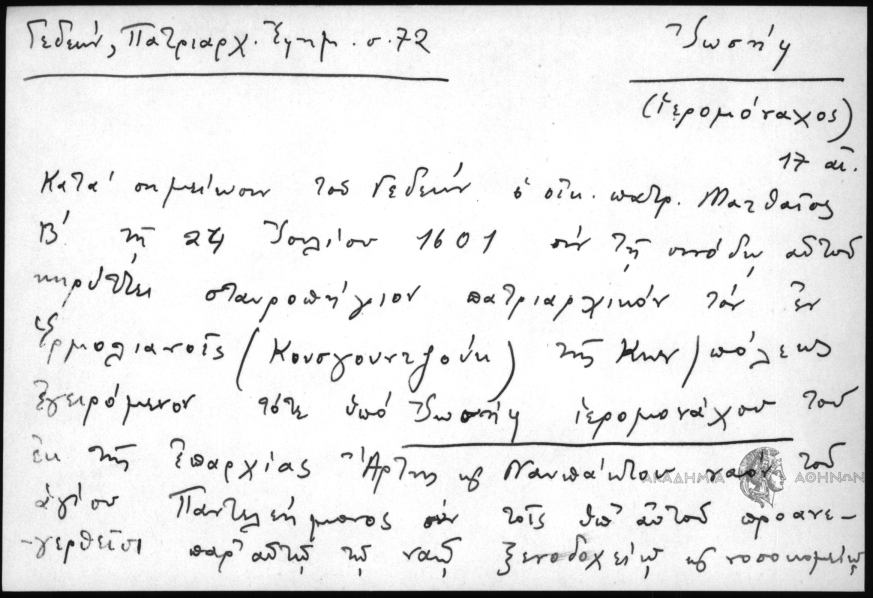 Γεδεών, Πατριαρχ. Ἐφημ. σ. 72
Ἰωσήφ
(ἱερομόναχος)
17 αἰ.
Κατά σημείωσιν τοῦ Γεδεών ὁ οἰκ. πατρ. Ματθαῖος
Β΄ τῇ 24 Ἰουλίου 1601 σύν τῇ συνόδῳ αὐτοῦ
κηρύττει σταυροπήγιον πατριαρχικόν τόν ἐν
Ἑρμολιανοῖς (Κουσγουντζούκ) τῆς Κων/πόλεως
ἐγειρόμενον τότε ὑπό Ἰωσήφ ἱερομονάχου τοῦ
ἐκ τῆς ἐπαρχίας Ἄρτης καὶ Ναυπάκτου ναόν τοῦ
ἁγίου Παντελεήμονος σύν τοῖς ὑπ' αὐτοῦ προανε-
-γερθεῖσι παρ' αὐτῷ τῷ ναῷ ξενοδοχείῳ καὶ νοσοκομείῳ
ΑΚΑΔΗΜΙΑ ΑΘΗΝΩΝ